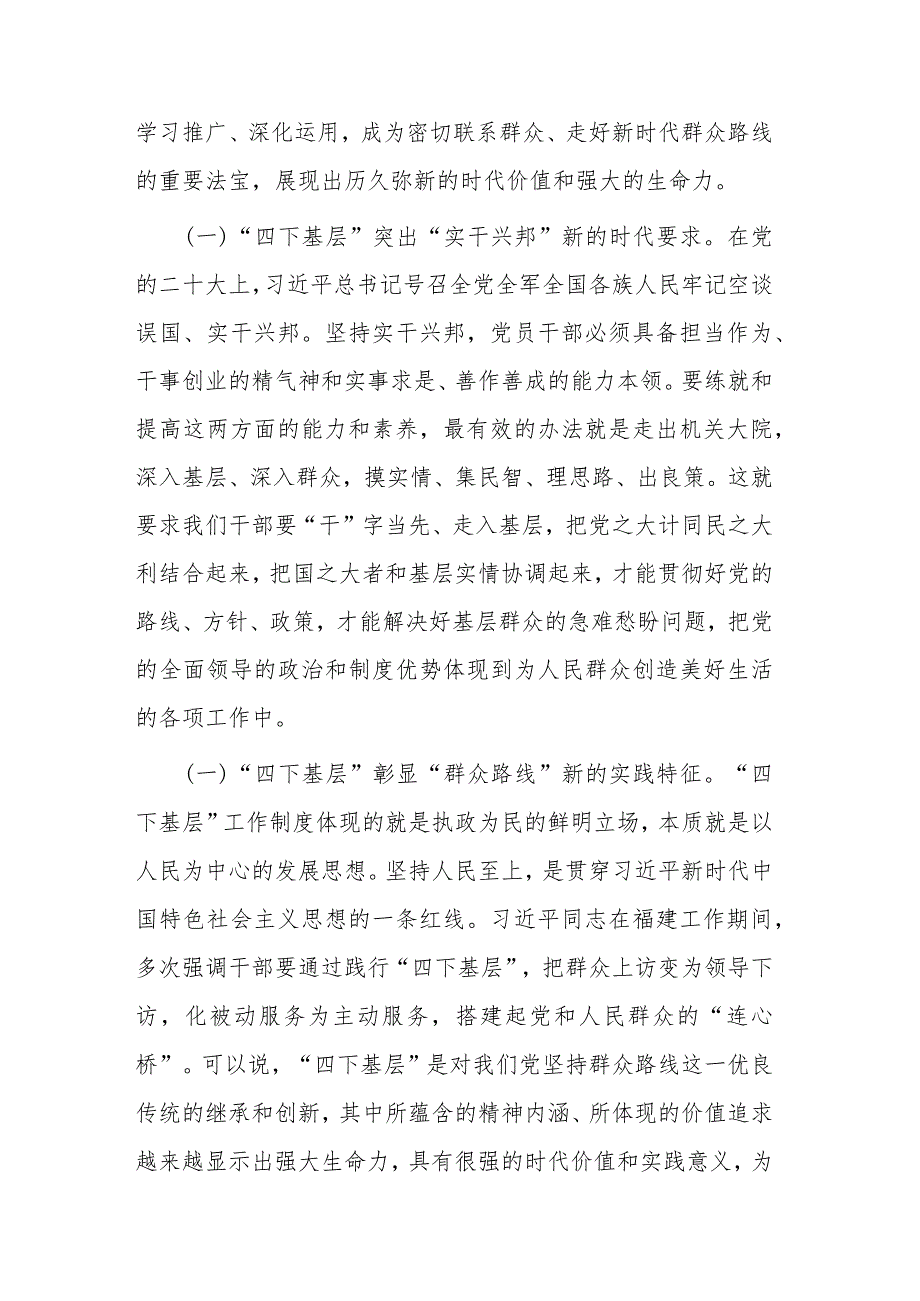 学习推广、深化运用，成为密切联系群众、走好新时代群众路线
的重要法宝，展现出历久弥新的时代价值和强大的生命力。
(一)“四下基层”突出“实干兴邦”新的时代要求。在党
的二十大上，习近平总书记号召全党全军全国各族人民牢记空谈
误国、实干兴邦。坚持实干兴邦，党员干部必须具备担当作为、
干事创业的精气神和实事求是、善作善成的能力本领。要练就和
提高这两方面的能力和素养，最有效的办法就是走出机关大院，
深入基层、深入群众，摸实情、集民智、理思路、出良策。这就
要求我们干部要“干”字当先、走入基层，把党之大计同民之大
利结合起来，把国之大者和基层实情协调起来，才能贯彻好党的
路线、方针、政策，才能解决好基层群众的急难愁盼问题，把党
的全面领导的政治和制度优势体现到为人民群众创造美好生活
的各项工作中。
(一)“四下基层”彰显“群众路线”新的实践特征。“四
下基层”工作制度体现的就是执政为民的鲜明立场，本质就是以
人民为中心的发展思想。坚持人民至上，是贯穿习近平新时代中
国特色社会主义思想的一条红线。习近平同志在福建工作期间，
多次强调干部要通过践行“四下基层”，把群众上访变为领导下
访，化被动服务为主动服务，搭建起党和人民群众的“连心
桥”。可以说，“四下基层”是对我们党坚持群众路线这一优良
传统的继承和创新，其中所蕴含的精神内涵、所体现的价值追求
越来越显示出强大生命力，具有很强的时代价值和实践意义，为